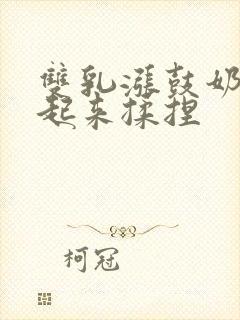 雙乳漲鼓奶
起来揉捏
柯冠